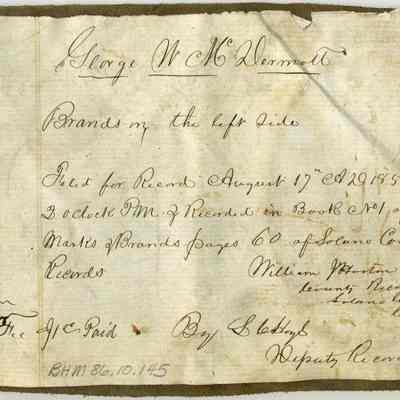 George W McDermott
Brands on the left side
Filed for Record August 17th AD 185
3 oclock P.M. & Recorded in Book No 1
Marks & Brands pages 60 of Solano Cou
Records
William Horton
County Reco
Solano
Fee $1c Paid
By S C Hoyl
Deputy Recor
BHM 86.10.145